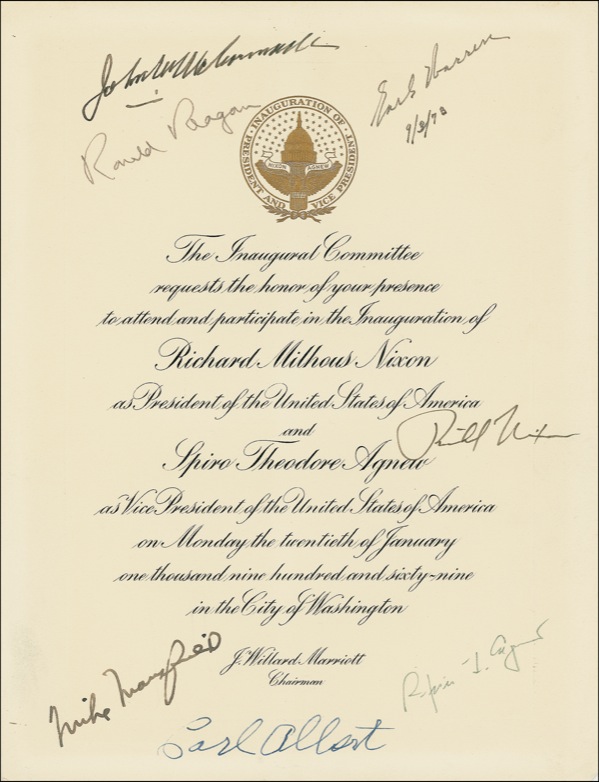 John W McCormack
Earl Warren
9/3/73
Ronald Reagan
INAUGURATION OF PRESIDENT AND VICE PRESIDENT
NIXON AGNEW
The Inaugural Committee
requests the honor of your presence
to attend and participate in the Inauguration of
Richard Milhous Nixon
as President of the United States of America
and
Richard Nixon
Spiro Theodore Agnew
as Vice President of the United States of America
on Monday the twentieth of January
one thousand nine hundred and sixty-nine
in the City of Washington
J. Willard Marriott
Chairman
Mike Mansfield
Spiro T. Agnew
Carl Albert